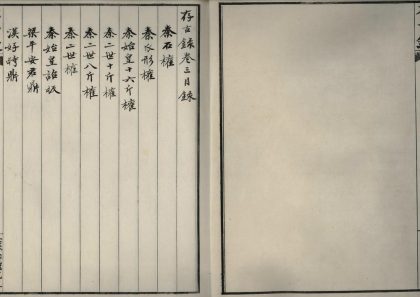 存古錄卷三目錄
秦石權
秦瓜形權
秦始皇十六斤權
秦二世十斤權
秦二世八斤權
秦二世權
秦始皇詔版
梁平安君鼎
漢好畤鼎